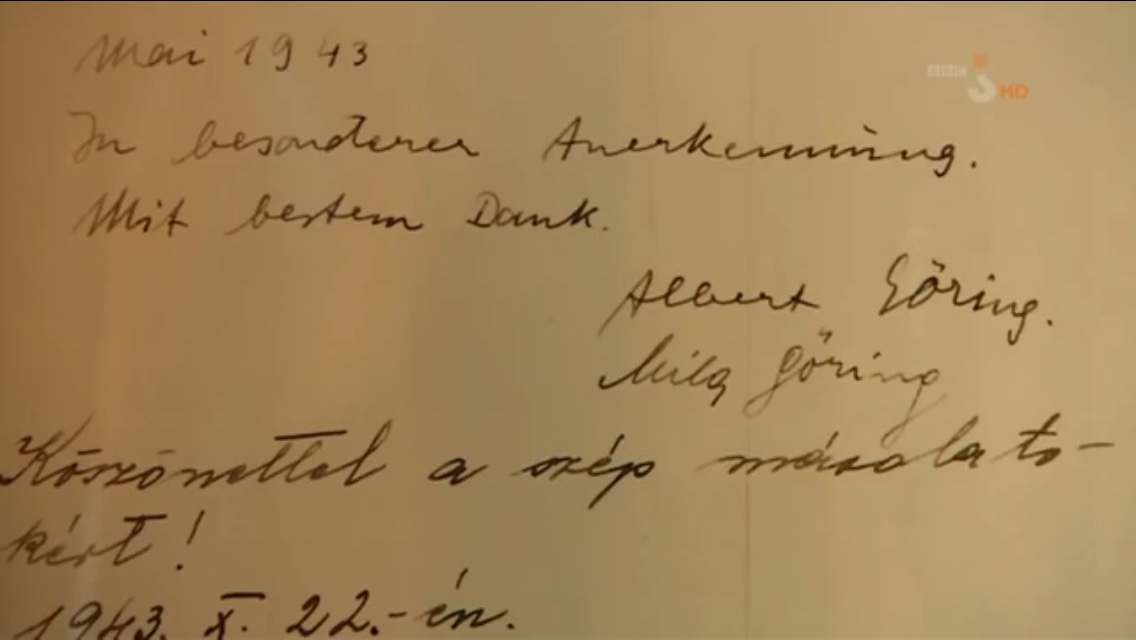 Mai 1943
BBC i HD
In besonderer Anerkennung.
Mit bestem Dank.
Albert Göring.
Mila Göring
Köszönettel a szép másolato-
kért!
1943. X. 22.-én.